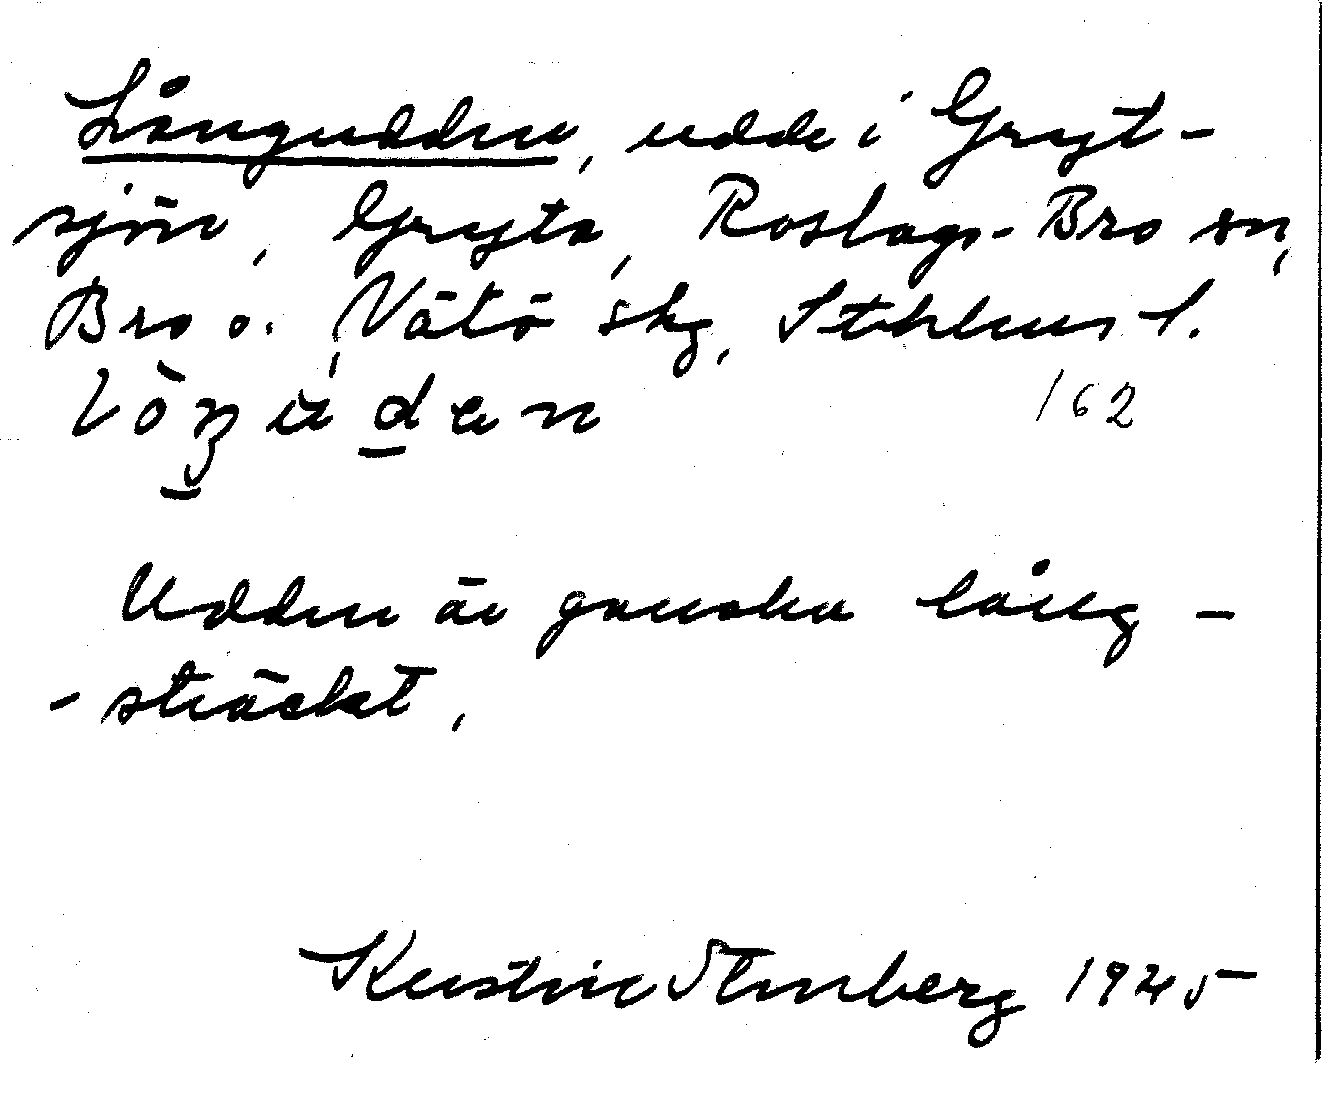 Långudden, udde i Gryt-
sjön, Gryta, Roslags-Bro sn,
Bro o. Vätö skg, Sthlms l.
162
Udden är ganska lång-
-sträckt.
Kerstin Stenberg 1945